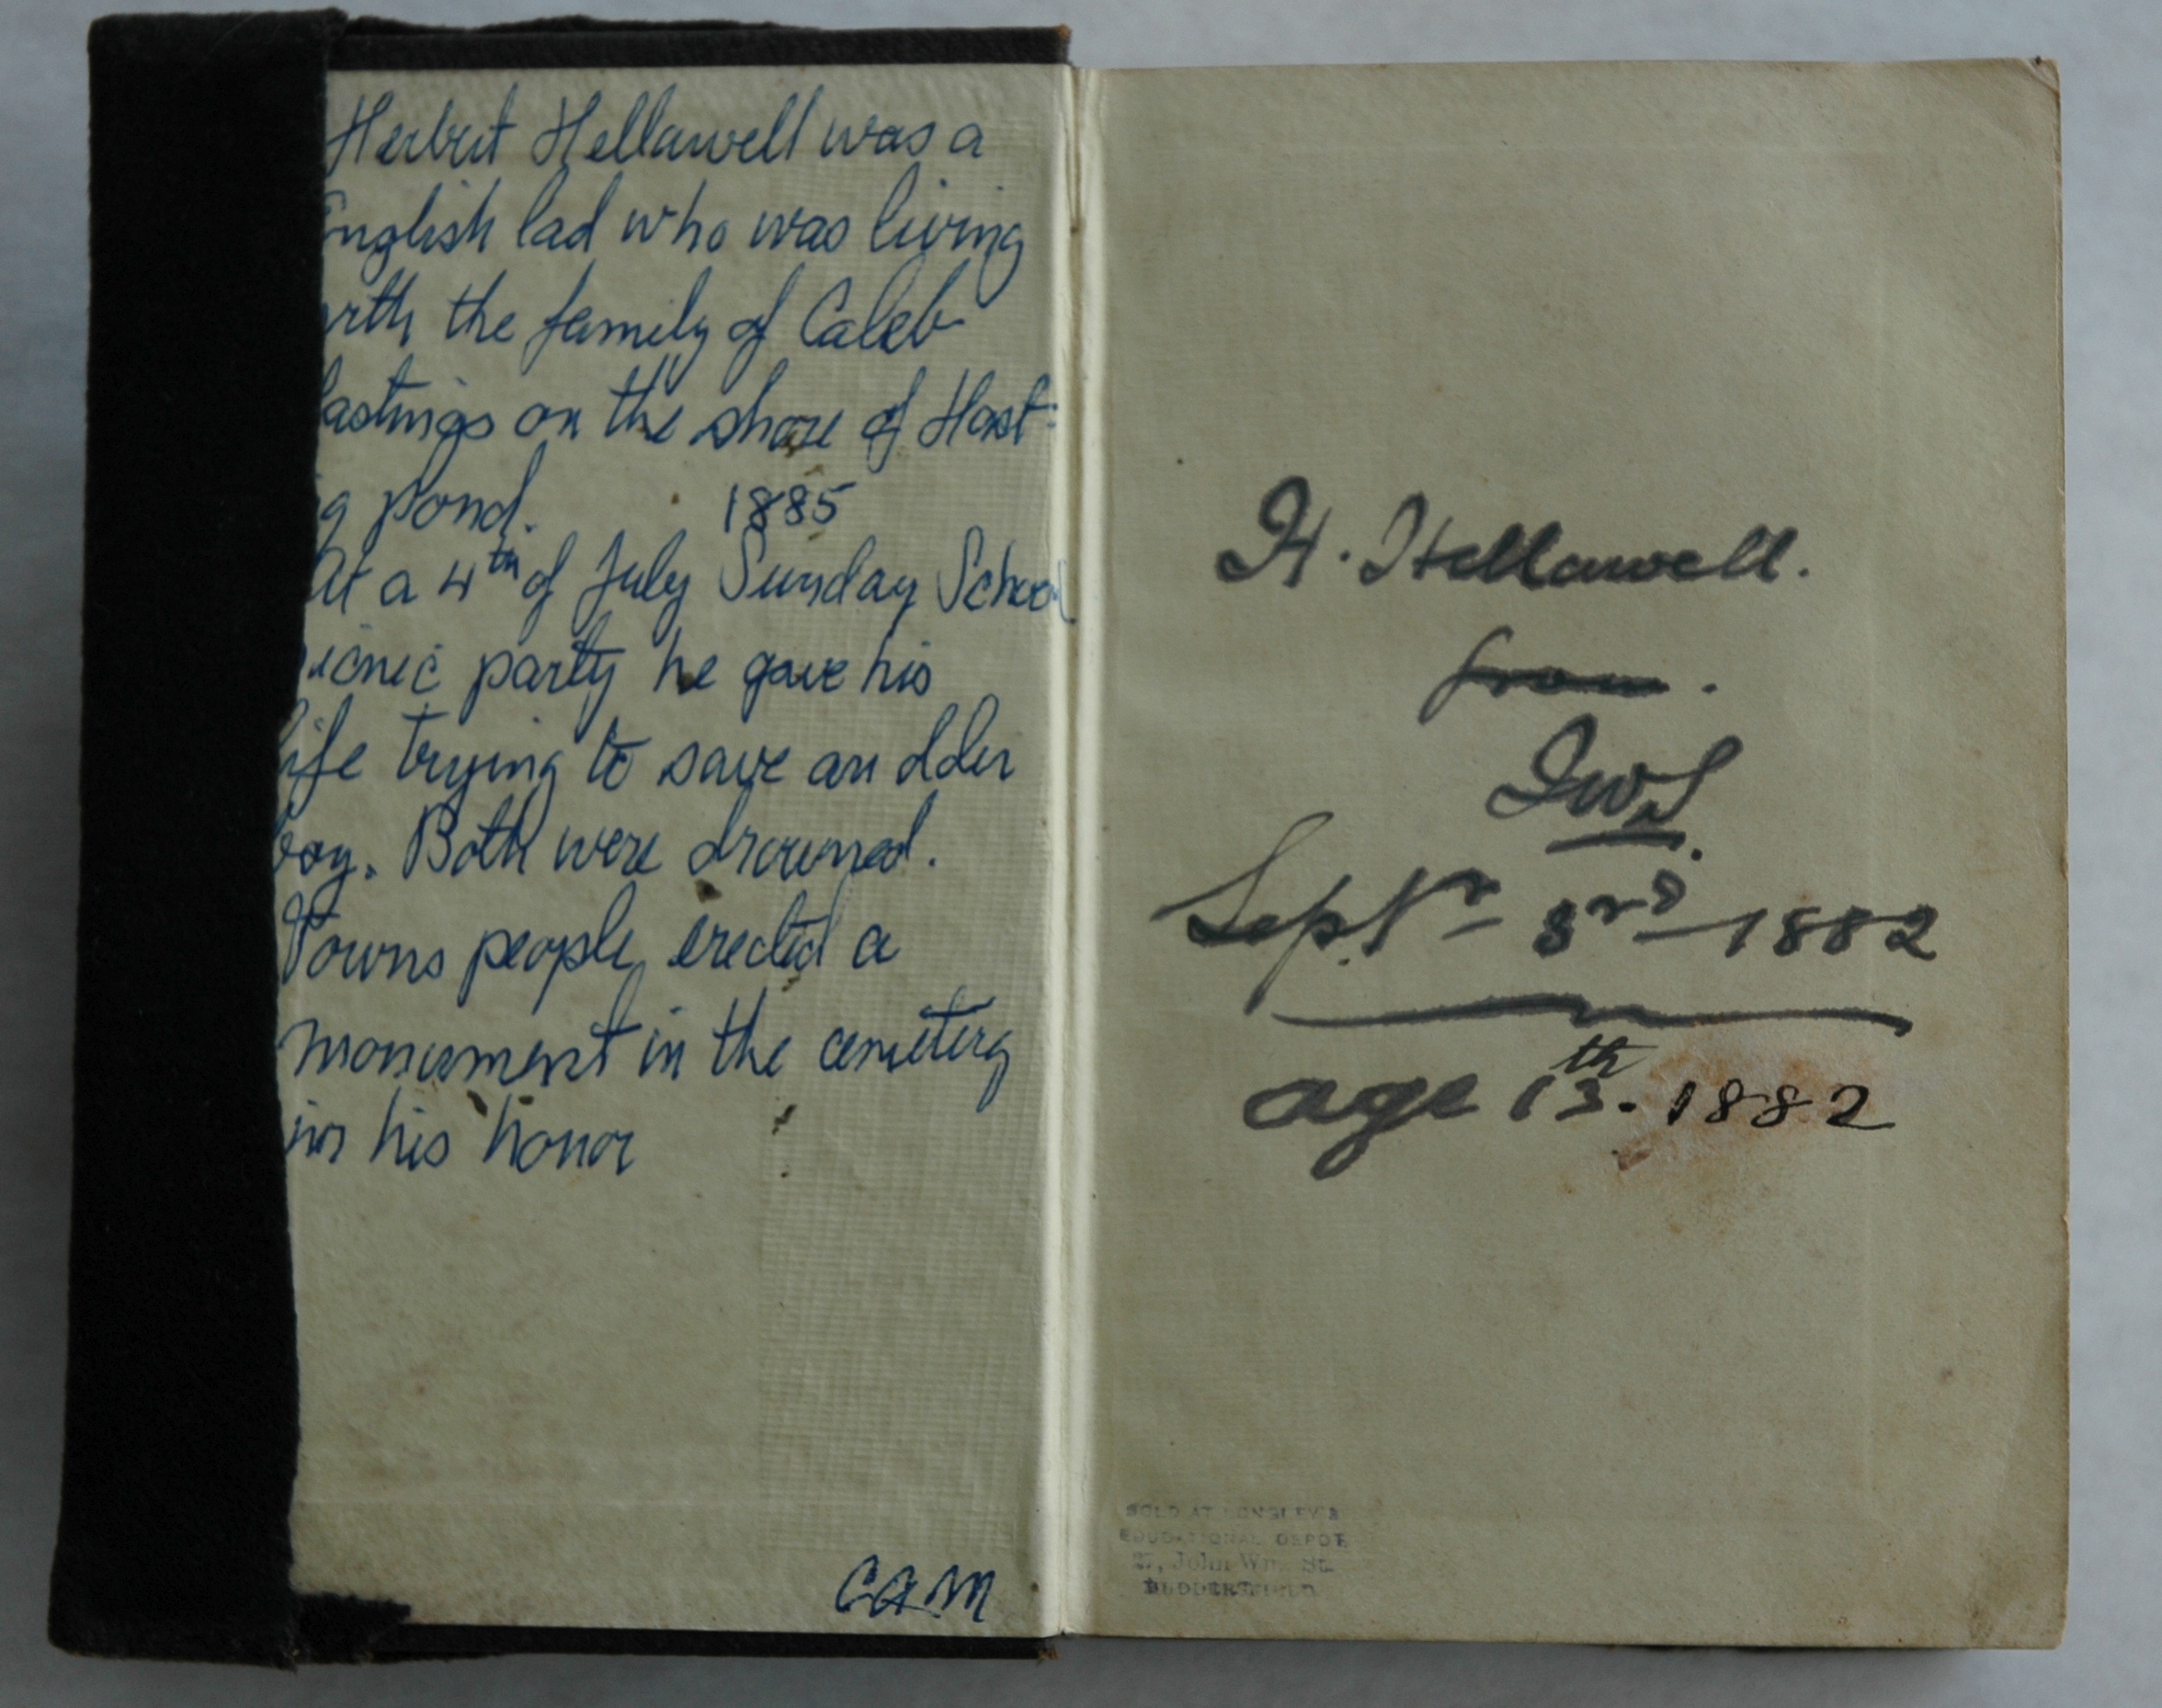 Herbert Hellawell was a
English lad who was living
with the family of Caleb
Hastings on the shore of Hast-
ing pond. 1885
At a 4th of July Sunday School
picnic party he gave his
life trying to save an older
boy. Both were drowned.
Towns people erected a
monument in the cemetery
in his honor
CAM
H. Hellawell.
from.
Septr 3rd 1882
age 13th. 1882
SOLD AT LONGLEY'S
EDUCATIONAL DEPOT
27, John Wm. St.
HUDDERSFIELD